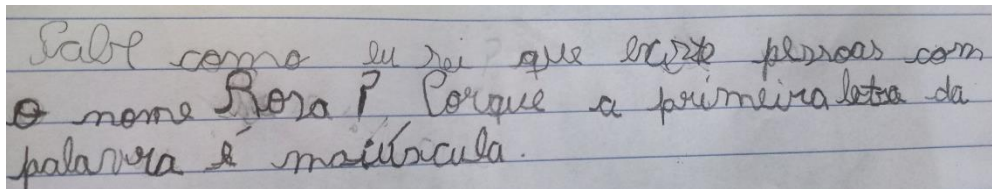 Sabe como eu sei que existe pessoas com
o nome Rosa? Porque a primeira letra da
palavra é maiúscula.